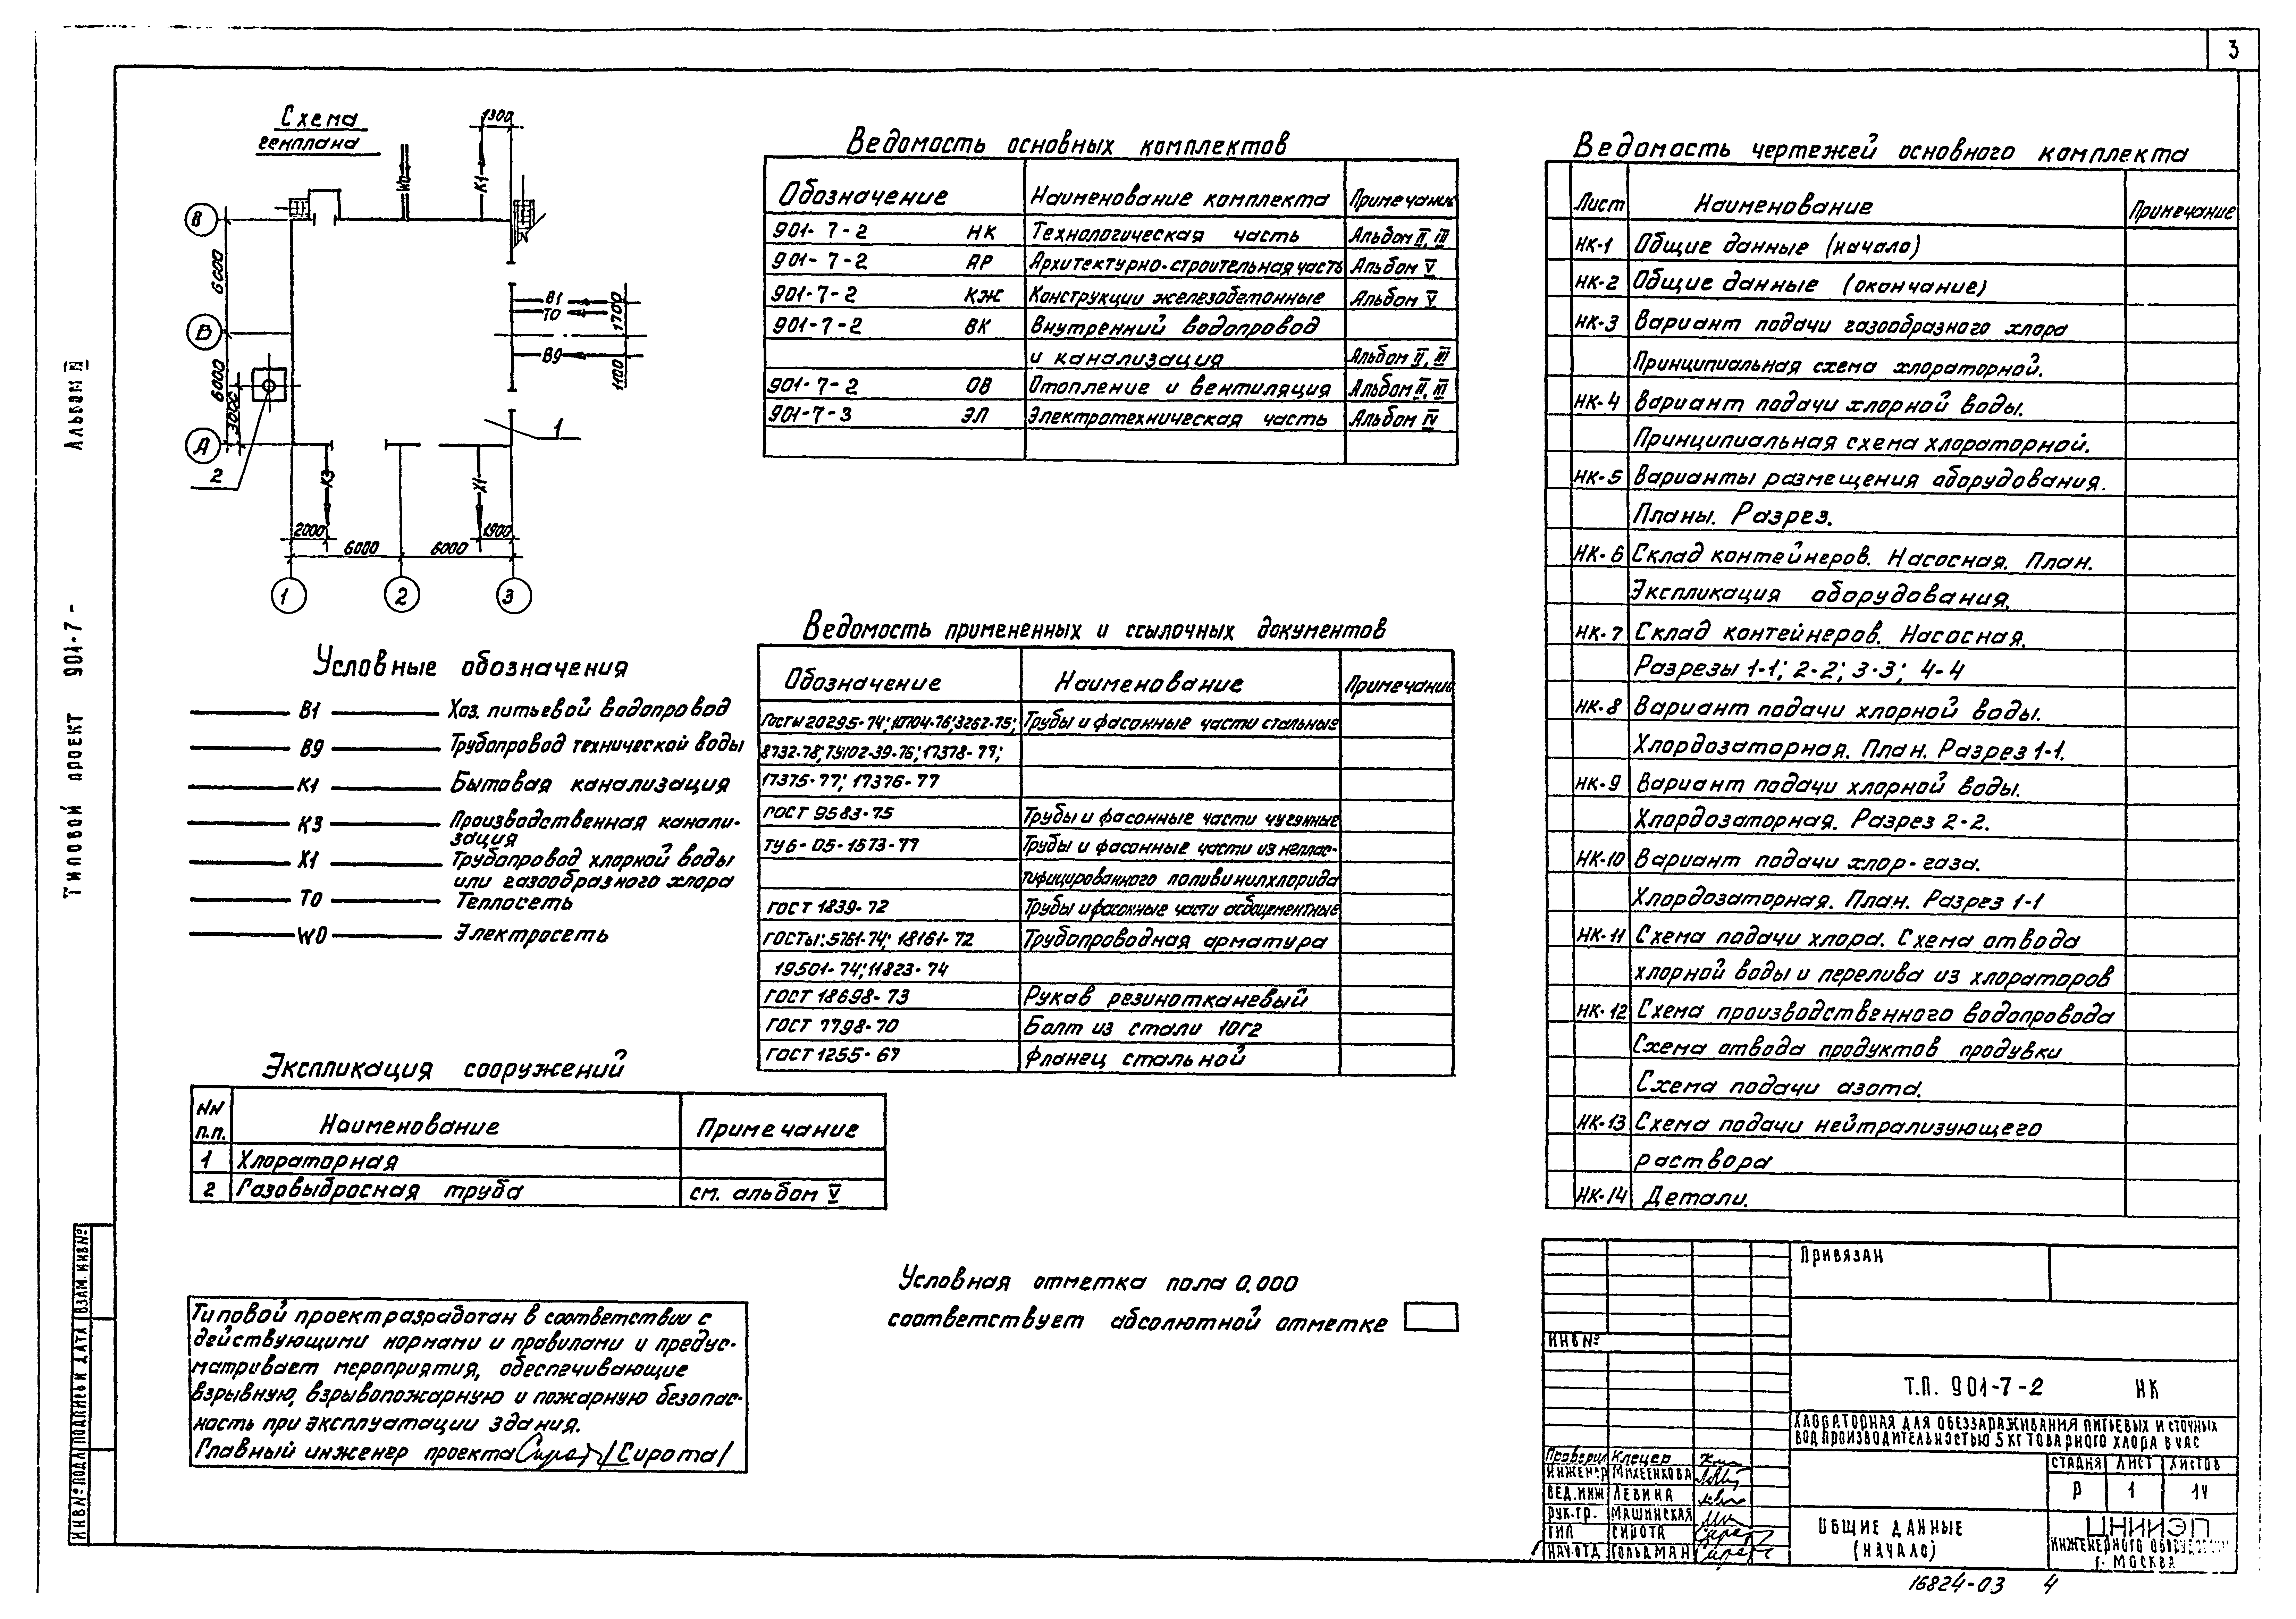 3
Схема
генплана
1300
W0
К1
В
6000
Б
6000
3000
А
2
В1
Т0
1700
В9
1100
1
К3
Х1
2000
1900
6000
6000
1
2
3
Условные обозначения
В1 Хоз. питьевой водопровод
В9 Трубопровод технической воды
К1 Бытовая канализация
К3 Производственная канали-
зация
Х1 Трубопровод хлорной воды
или газообразного хлора
Т0 Теплосеть
W0 Электросеть
Экспликация сооружений
NN п.п. Наименование Примечание
1 Хлораторная
2 Газовыбросная труба см. альбом V
Типовой проект разработан в соответствии с
действующими нормами и правилами и предус-
матривает мероприятия, обеспечивающие
взрывную, взрывопожарную и пожарную безопас-
ность при эксплуатации здания.
Главный инженер проекта /Сирота/
Ведомость основных комплектов
Обозначение Наименование комплекта Примечание
901-7-2 НК Технологическая часть Альбом II, III
901-7-2 АР Архитектурно-строительная часть Альбом V
901-7-2 КЖ Конструкции железобетонные Альбом V
901-7-2 ВК Внутренний водопровод
и канализация Альбом II, III
901-7-2 ОВ Отопление и вентиляция Альбом II, III
901-7-3 ЭЛ Электротехническая часть Альбом IV
Ведомость примененных и ссылочных документов
Обозначение Наименование Примечание
Госты 20295-74; 10704-76; 3262-75; Трубы и фасонные части стальные
8732-78; ТУ102-39-76; 17378-77;
17375-77; 17376-77
ГОСТ 9583-75 Трубы и фасонные части чугунные
ТУ6-05-1573-77 Трубы и фасонные части из неплас-
тифицированного поливинилхлорида
ГОСТ 1839-72 Трубы и фасонные части асбоцементные
ГОСТы: 5761-74; 18161-72 Трубопроводная арматура
19501-74; 11823-74
ГОСТ 18698-73 Рукав резинотканевый
ГОСТ 7798-70 Болт из стали 10Г2
ГОСТ 1255-67 Фланец стальной
Условная отметка пола 0.000
соответствует абсолютной отметке
Ведомость чертежей основного комплекта
Лист Наименование Примечание
НК-1 Общие данные (начало)
НК-2 Общие данные (окончание)
НК-3 Вариант подачи газообразного хлора
Принципиальная схема хлораторной.
НК-4 Вариант подачи хлорной воды.
Принципиальная схема хлораторной.
НК-5 Варианты размещения оборудования.
Планы. Разрез.
НК-6 Склад контейнеров. Насосная. План.
Экспликация оборудования.
НК-7 Склад контейнеров. Насосная.
Разрезы 1-1; 2-2; 3-3; 4-4
НК-8 Вариант подачи хлорной воды.
Хлордозаторная. План. Разрез 1-1.
НК-9 Вариант подачи хлорной воды.
Хлордозаторная. Разрез 2-2.
НК-10 Вариант подачи хлор-газа.
Хлордозаторная. План. Разрез 1-1
НК-11 Схема подачи хлора. Схема отвода
хлорной воды и перелива из хлораторов
НК-12 Схема производственного водопровода
Схема отвода продуктов продувки
Схема подачи азота.
НК-13 Схема подачи нейтрализующего
раствора
НК-14 Детали.
Привязан
ИНВ №
Т.П. 901-7-2 НК
ХЛОРАТОРНАЯ ДЛЯ ОБЕЗЗАРАЖИВАНИЯ ПИТЬЕВЫХ И СТОЧНЫХ
ВОД ПРОИЗВОДИТЕЛЬНОСТЬЮ 5 КГ ТОВАРНОГО ХЛОРА В ЧАС
Проверил Клецер
ИНЖЕНЕР МИХЕЕНКОВА
ВЕД.ИНЖ ЛЕВИНА
РУК.ГР. МАШИНСКАЯ
ГИП СИРОТА
НАЧ.ОТД ГОЛЬДМАН
СТАДИЯ ЛИСТ ЛИСТОВ
Р 1 14
ОБЩИЕ ДАННЫЕ
(НАЧАЛО)
ЦНИИЭП
ИНЖЕНЕРНОГО ОБОРУДОВАНИЯ
г. МОСКВА
16824-03 4
Альбом II
Типовой проект 901-7-
ИНВ № ПОДЛ ПОДПИСЬ И ДАТА ВЗАМ. ИНВ №